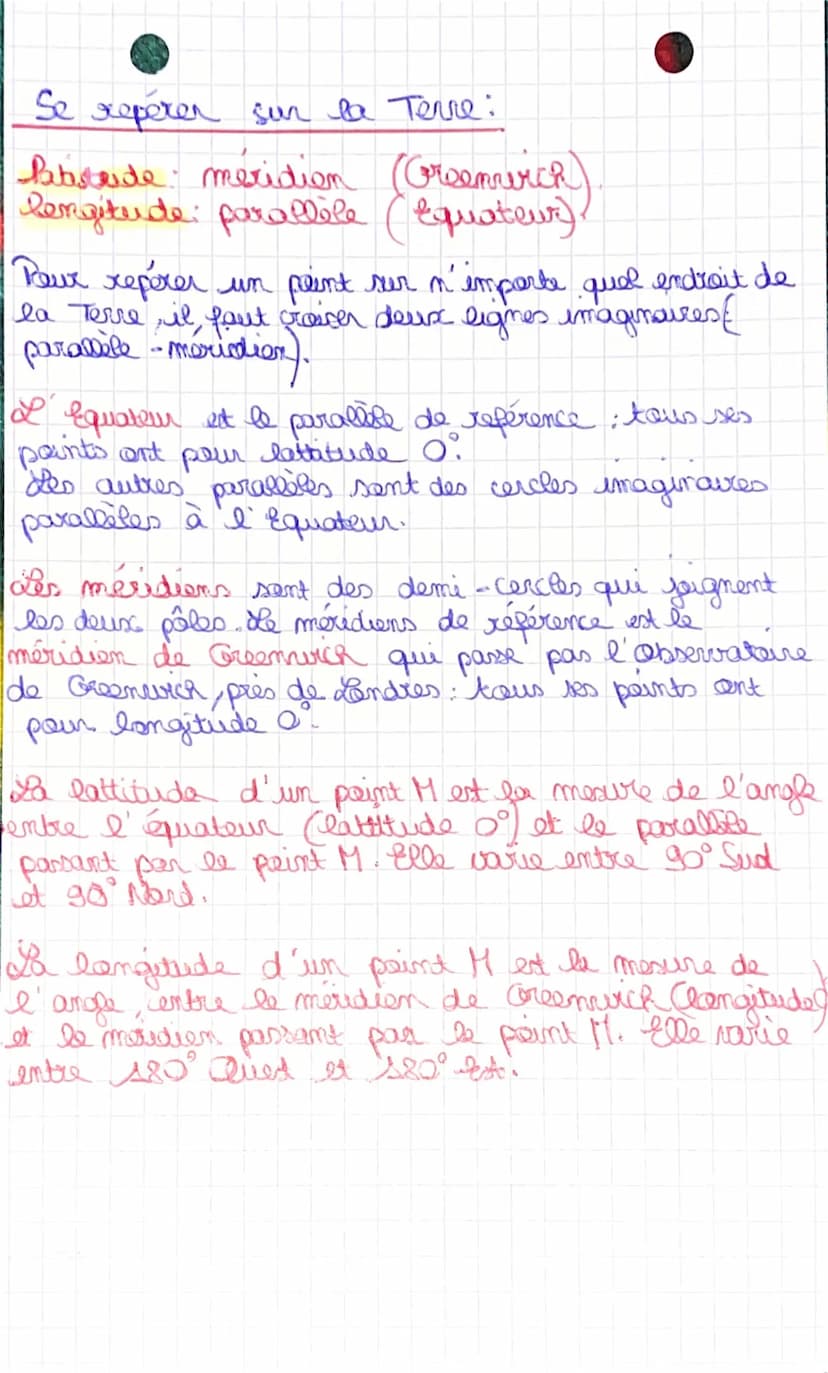 Se repérer sur la Terre :
latitude : méridien (Greenwich)
longitude : parallèle (Equateur)
Pour repérer un point sur n'importe quel endroit de
la Terre, il faut croiser deux lignes imaginaires (
parallèle - méridien).
L'Equateur est le parallèle de référence : tous ses
points ont pour lattitude 0°.
Les autres parallèles sont des cercles imaginaires
parallèles à l'Equateur.
Les méridiens sont des demi-cercles qui joignent
les deux pôles. Le méridiens de référence est le
méridien de Greenwich qui passe par l'observatoire
de Greenwich, près de Londres : tous ses points ont
pour longitude 0°.
La lattitude d'un point M est la mesure de l'angle
entre l'équateur (lattitude 0°) et le parallèle
passant par le point M. Elle varie entre 90° Sud
et 90° Nord.
La longitude d'un point M est la mesure de
l'angle, entre le méridien de Greenwich (longitude 0)
et le méridien passant par le point M. Elle varie
entre 180° Ouest et 180° Est.